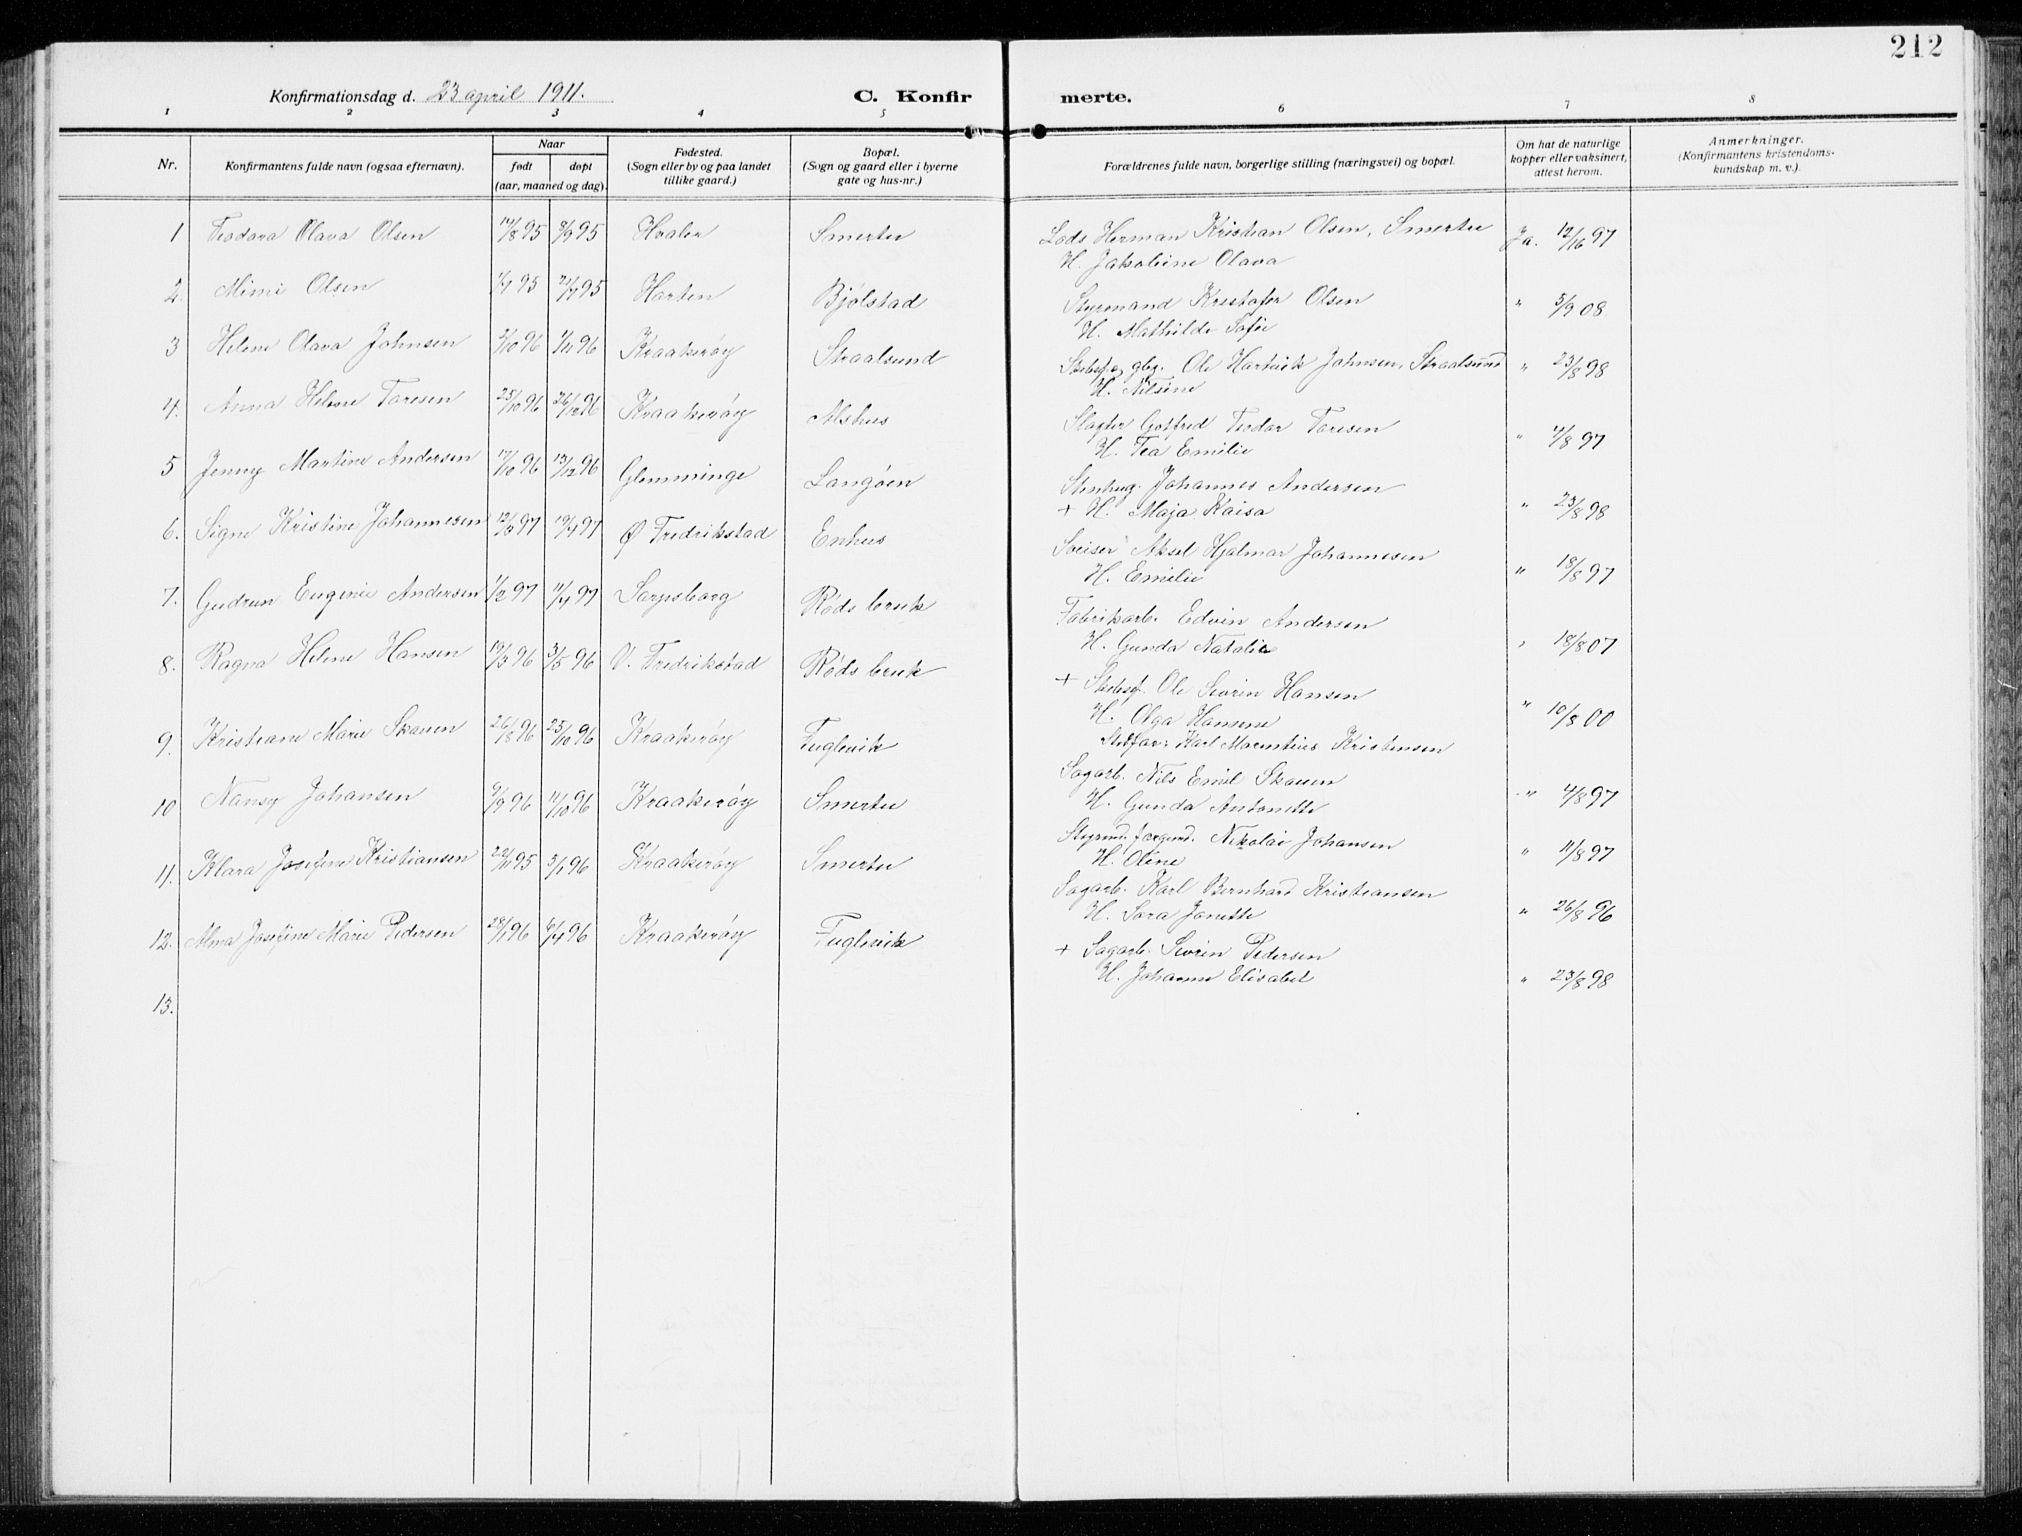 212
Konfirmationsdag d. 23 april 1911. C. Konfir merte.
1 2 3 4 5 6 7 8
Nr. Konfirmantens fulde navn (ogsaa efternavn). Naar født døpt (aar, maaned og dag). Fødested. (Sogn eller by og paa landet tillike gaard.) Bopæl. (Sogn og gaard eller i byerne gate og hus-nr.) Forældrenes fulde navn, borgerlige stilling (næringsvei) og bopæl. Om hat de naturlige kopper eller vaksinert, attest herom. Anmerkninger. (Konfirmantens kristendoms-kundskap m. v.).
1 Teodora Olava Olsen 14/8 95 8/9 95 Hvaler Smertu Lods Herman Kristian Olsen, Smertu Ja. 97
H. Jakobine Olava
2. Mimi Olsen 1/7 95 21/7 95 Horten Bjølstad Styrmand Kristofer Olsen " 5/9 08
H. Mathilde Sofie
3 Helene Olava Johnsen 2/10 96 1/11 96 Kraakerøy Straalsund Skibsf. og gbg. Ole Hartvik Johnsen, Straalsund " 23/8 98
H. Nilsine
4. Anna Helene Toresen 25/10 96 26/12 96 Kraakerøy Alshus Slagter Gotfred Teodor Toresen " 4/8 97
H. Tea Emilie
5 Jenny Martine Andersen 17/10 96 13/12 96 Glemminge Langøen Stenhug. Johannes Andersen
+ H. Maja Kaisa " 23/8 98
6. Signe Kristine Johannesen 12/3 97 19/4 97 Ø Fredrikstad Enhus Sveiser Aksel Hjalmar Johannesen
H. Emilie " 18/8 97
7. Gudrun Eugenie Andersen 1/2 97 11/4 97 Sarpsborg Røds bruk Fabrikarb. Edvin Andersen
H. Gunda Natalie " 18/8 07
8. Ragna Helene Hansen 19/3 96 3/5 96 V. Fredrikstad Røds bruk + Skibsf. Ole Severin Hansen
H. Olga Hansine " 10/8 00
Stedfar: Karl Kristensen
9. Kristiane Marie Skauen 26/8 96 25/10 96 Kraakerøy Fuglevik Sagarb. Nils Emil Skauen
H. Gunda Antonette " 4/8 97
10 Nansy Johansen 9/9 96 11/10 96 Kraakerøy Smertu Styrmd. Nikolai Johansen
H. Oline " 11/8 97
11. Klara Josefine Kristiansen 22/11 95 5/1 96 Kraakerøy Smertu Sagarb. Karl Bernhard Kristiansen
H. Sara Janette " 26/8 96
12. Alma Josefine Marie Pedersen 28/1 96 6/4 96 Kraakerøy Fuglevik + Sagarb. Severin Pedersen
H. Johanne Elisabet " 23/8 98
13.